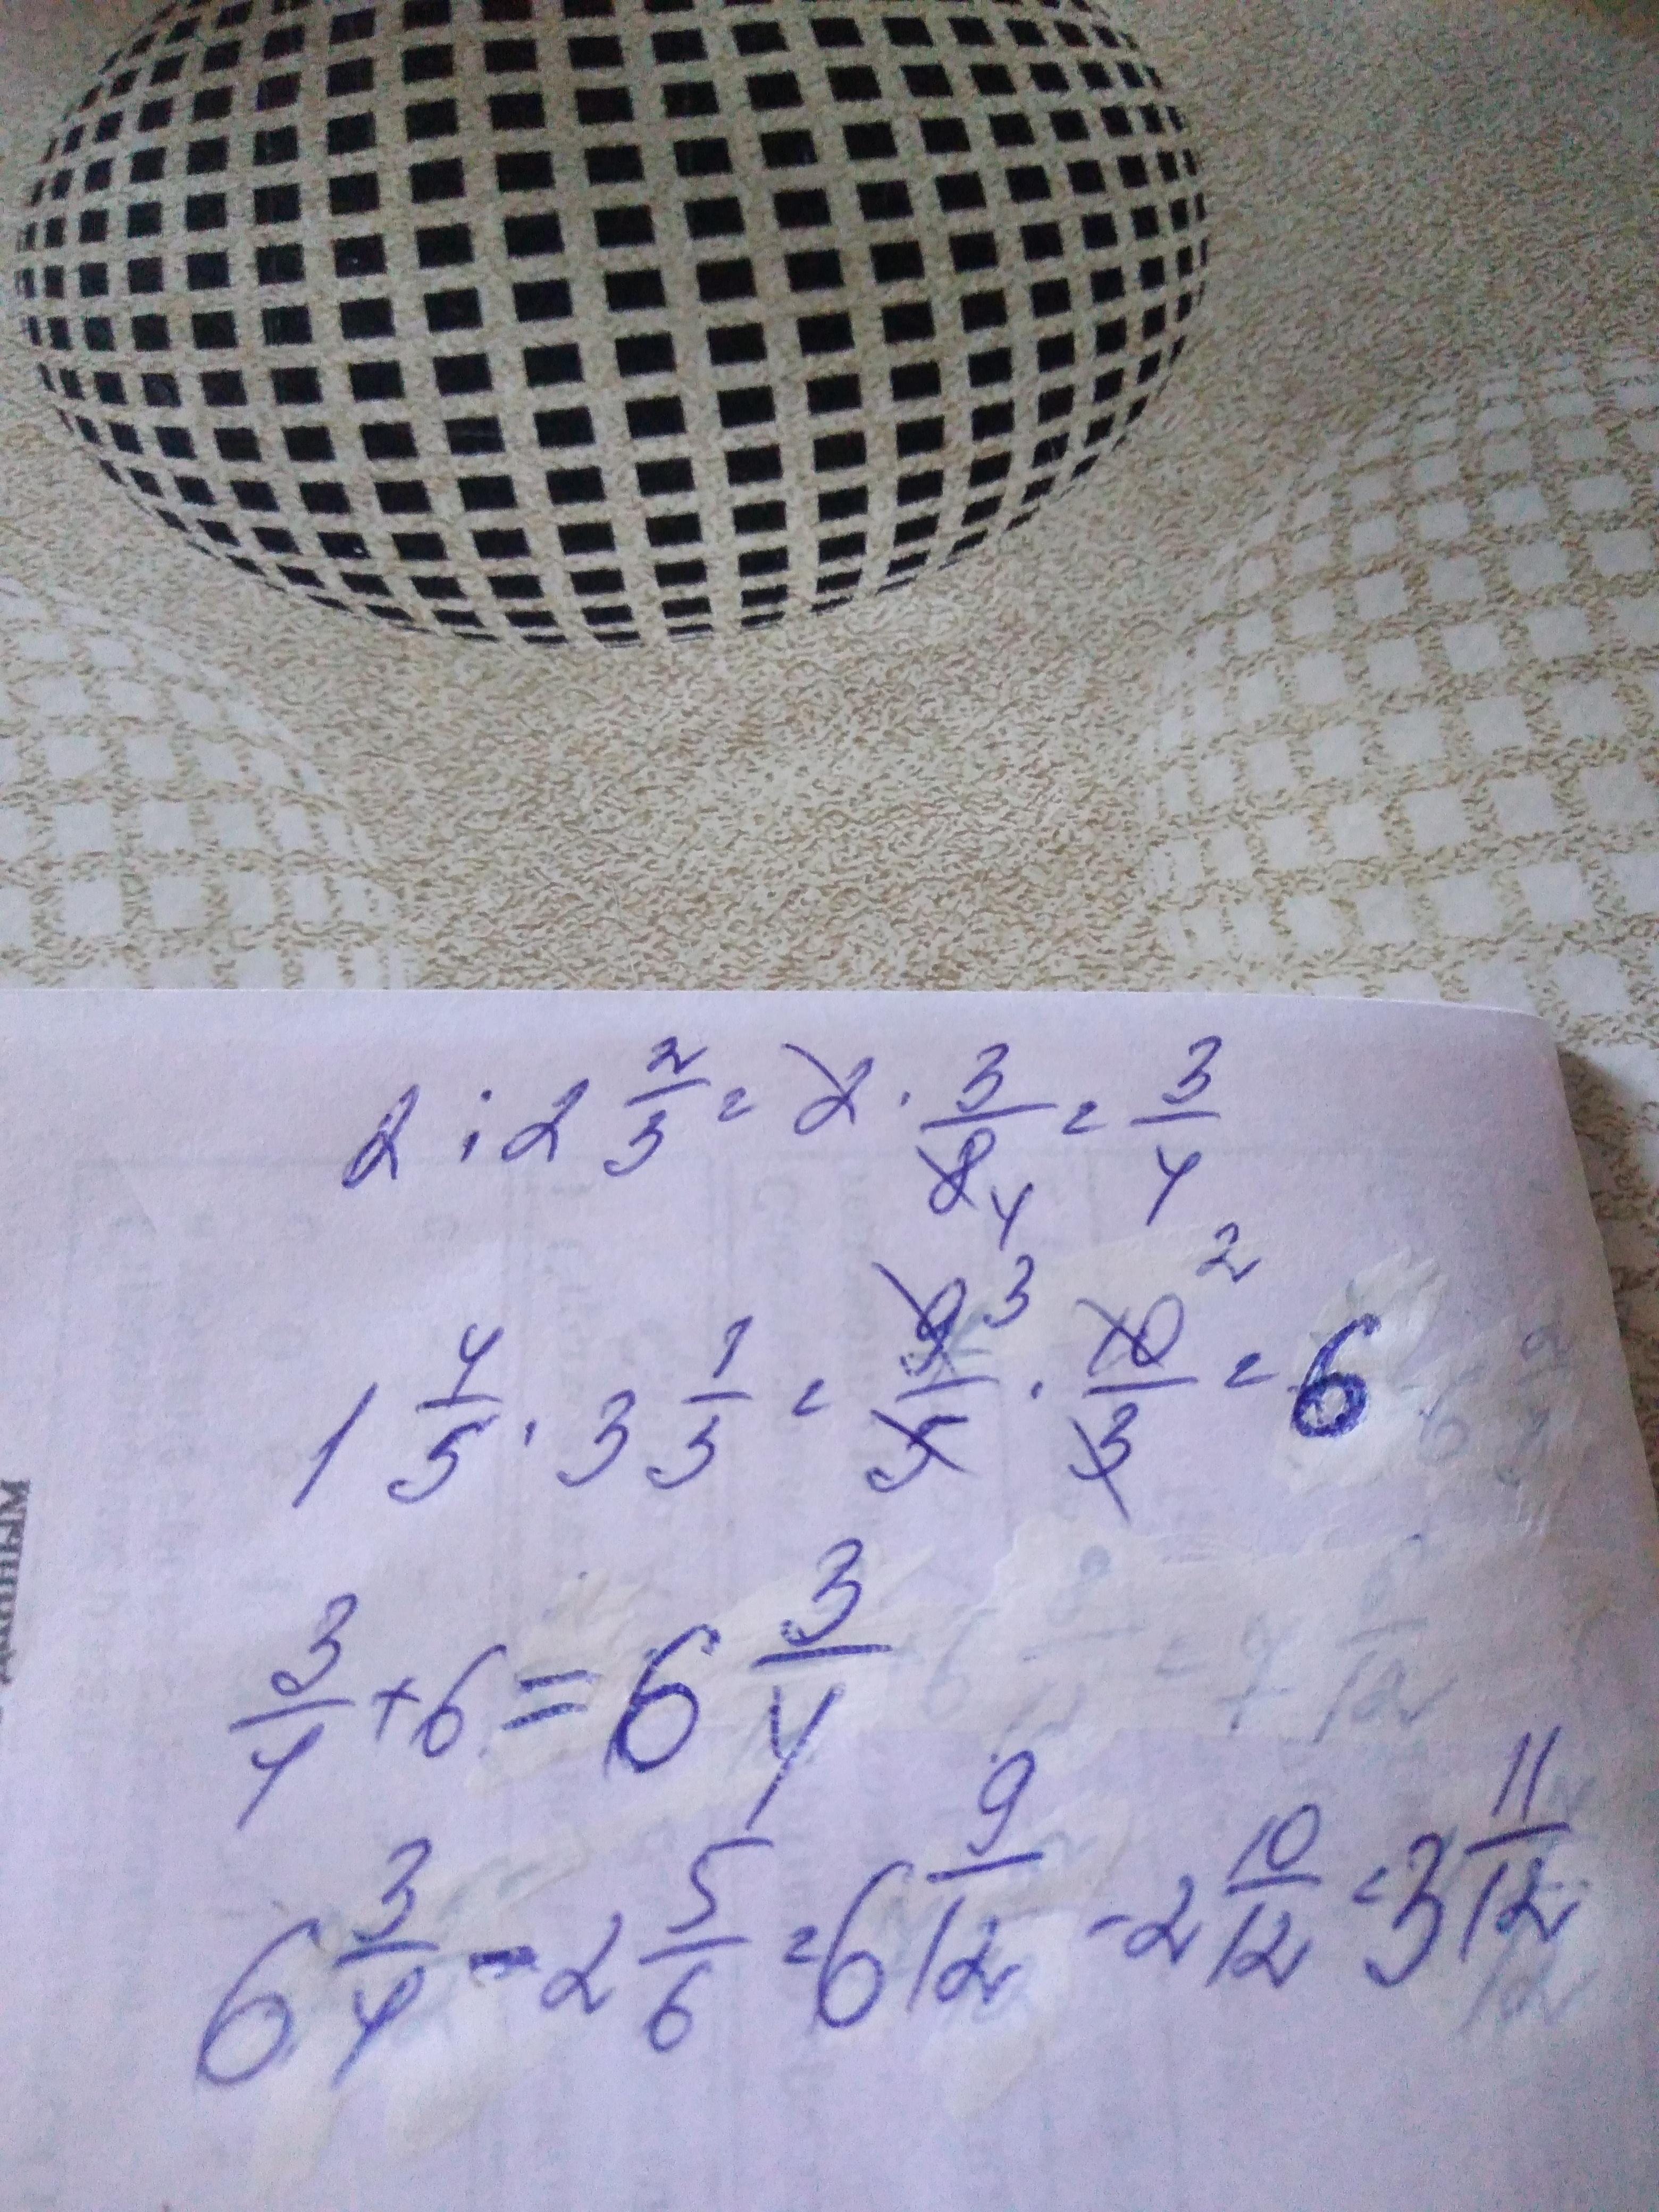 2 : 2 2/3 = 2 · 3/8 4 = 3/4
1 4/5 · 3 1/3 = 9/5 3 · 10/3 2 = 6
3/4 + 6 = 6 3/4
6 3/4 - 2 5/6 = 6 9/12 - 2 10/12 = 3 11/12